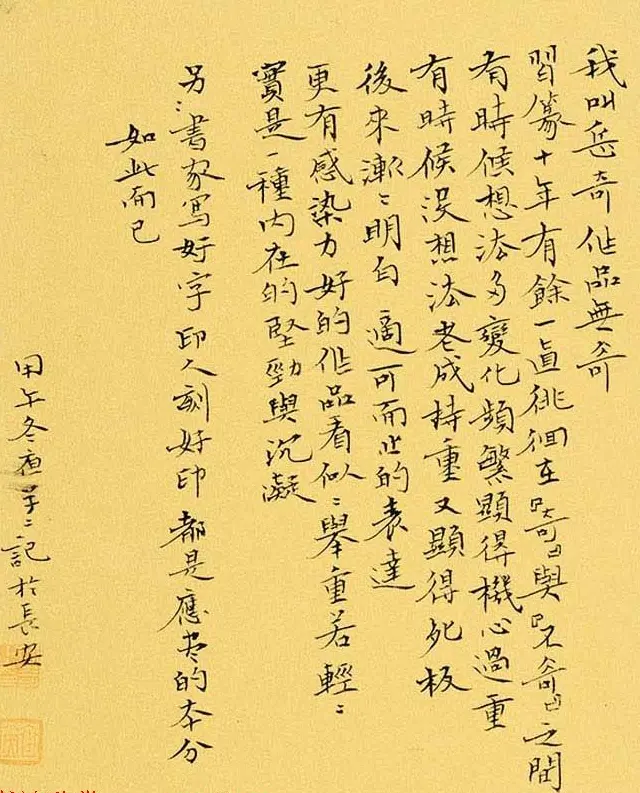 我叫岳奇作品無奇
習篆十年有餘一直徘徊在『奇』與『不奇』之間
有時候想法多變化頻繁顯得機心過重
有時候沒想法老成持重又顯得死板
後來漸〻明白適可而止的表達
更有感染力好的作品看似〻舉重若輕〻
實是一種内在的堅勁與沉凝
另〻書家寫好字印人刻好印都是應盡的本分
如此而已
甲午冬夜
記於長安